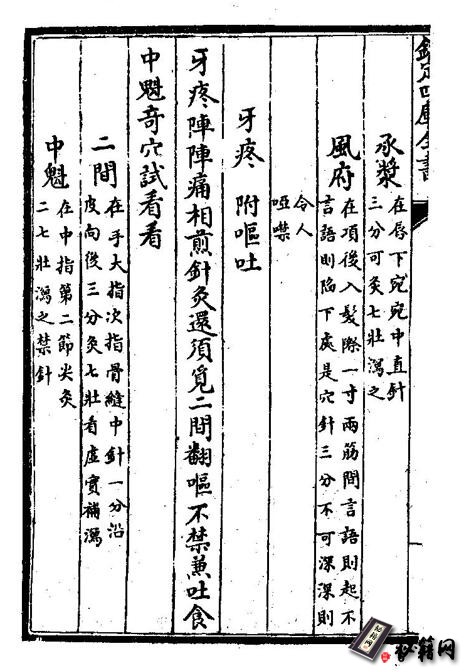 欽定四庫全書
承漿
在唇下宛宛中直針
三分可灸七壯瀉之
風府
在項後入髮際一寸兩筋間言語則起不
言語則陷下處是穴針三分不可深深則
令人
啞噤
牙疼 附嘔吐
牙疼陣陣痛相煎針灸還須覓二間翻嘔不禁兼吐食
中魁奇穴試看看
二間
在手大指次指骨縫中針一分沿
皮向後三分灸七壯看虛實補瀉
中魁
在中指第二節尖灸
二七壯瀉之禁針
秘籍网